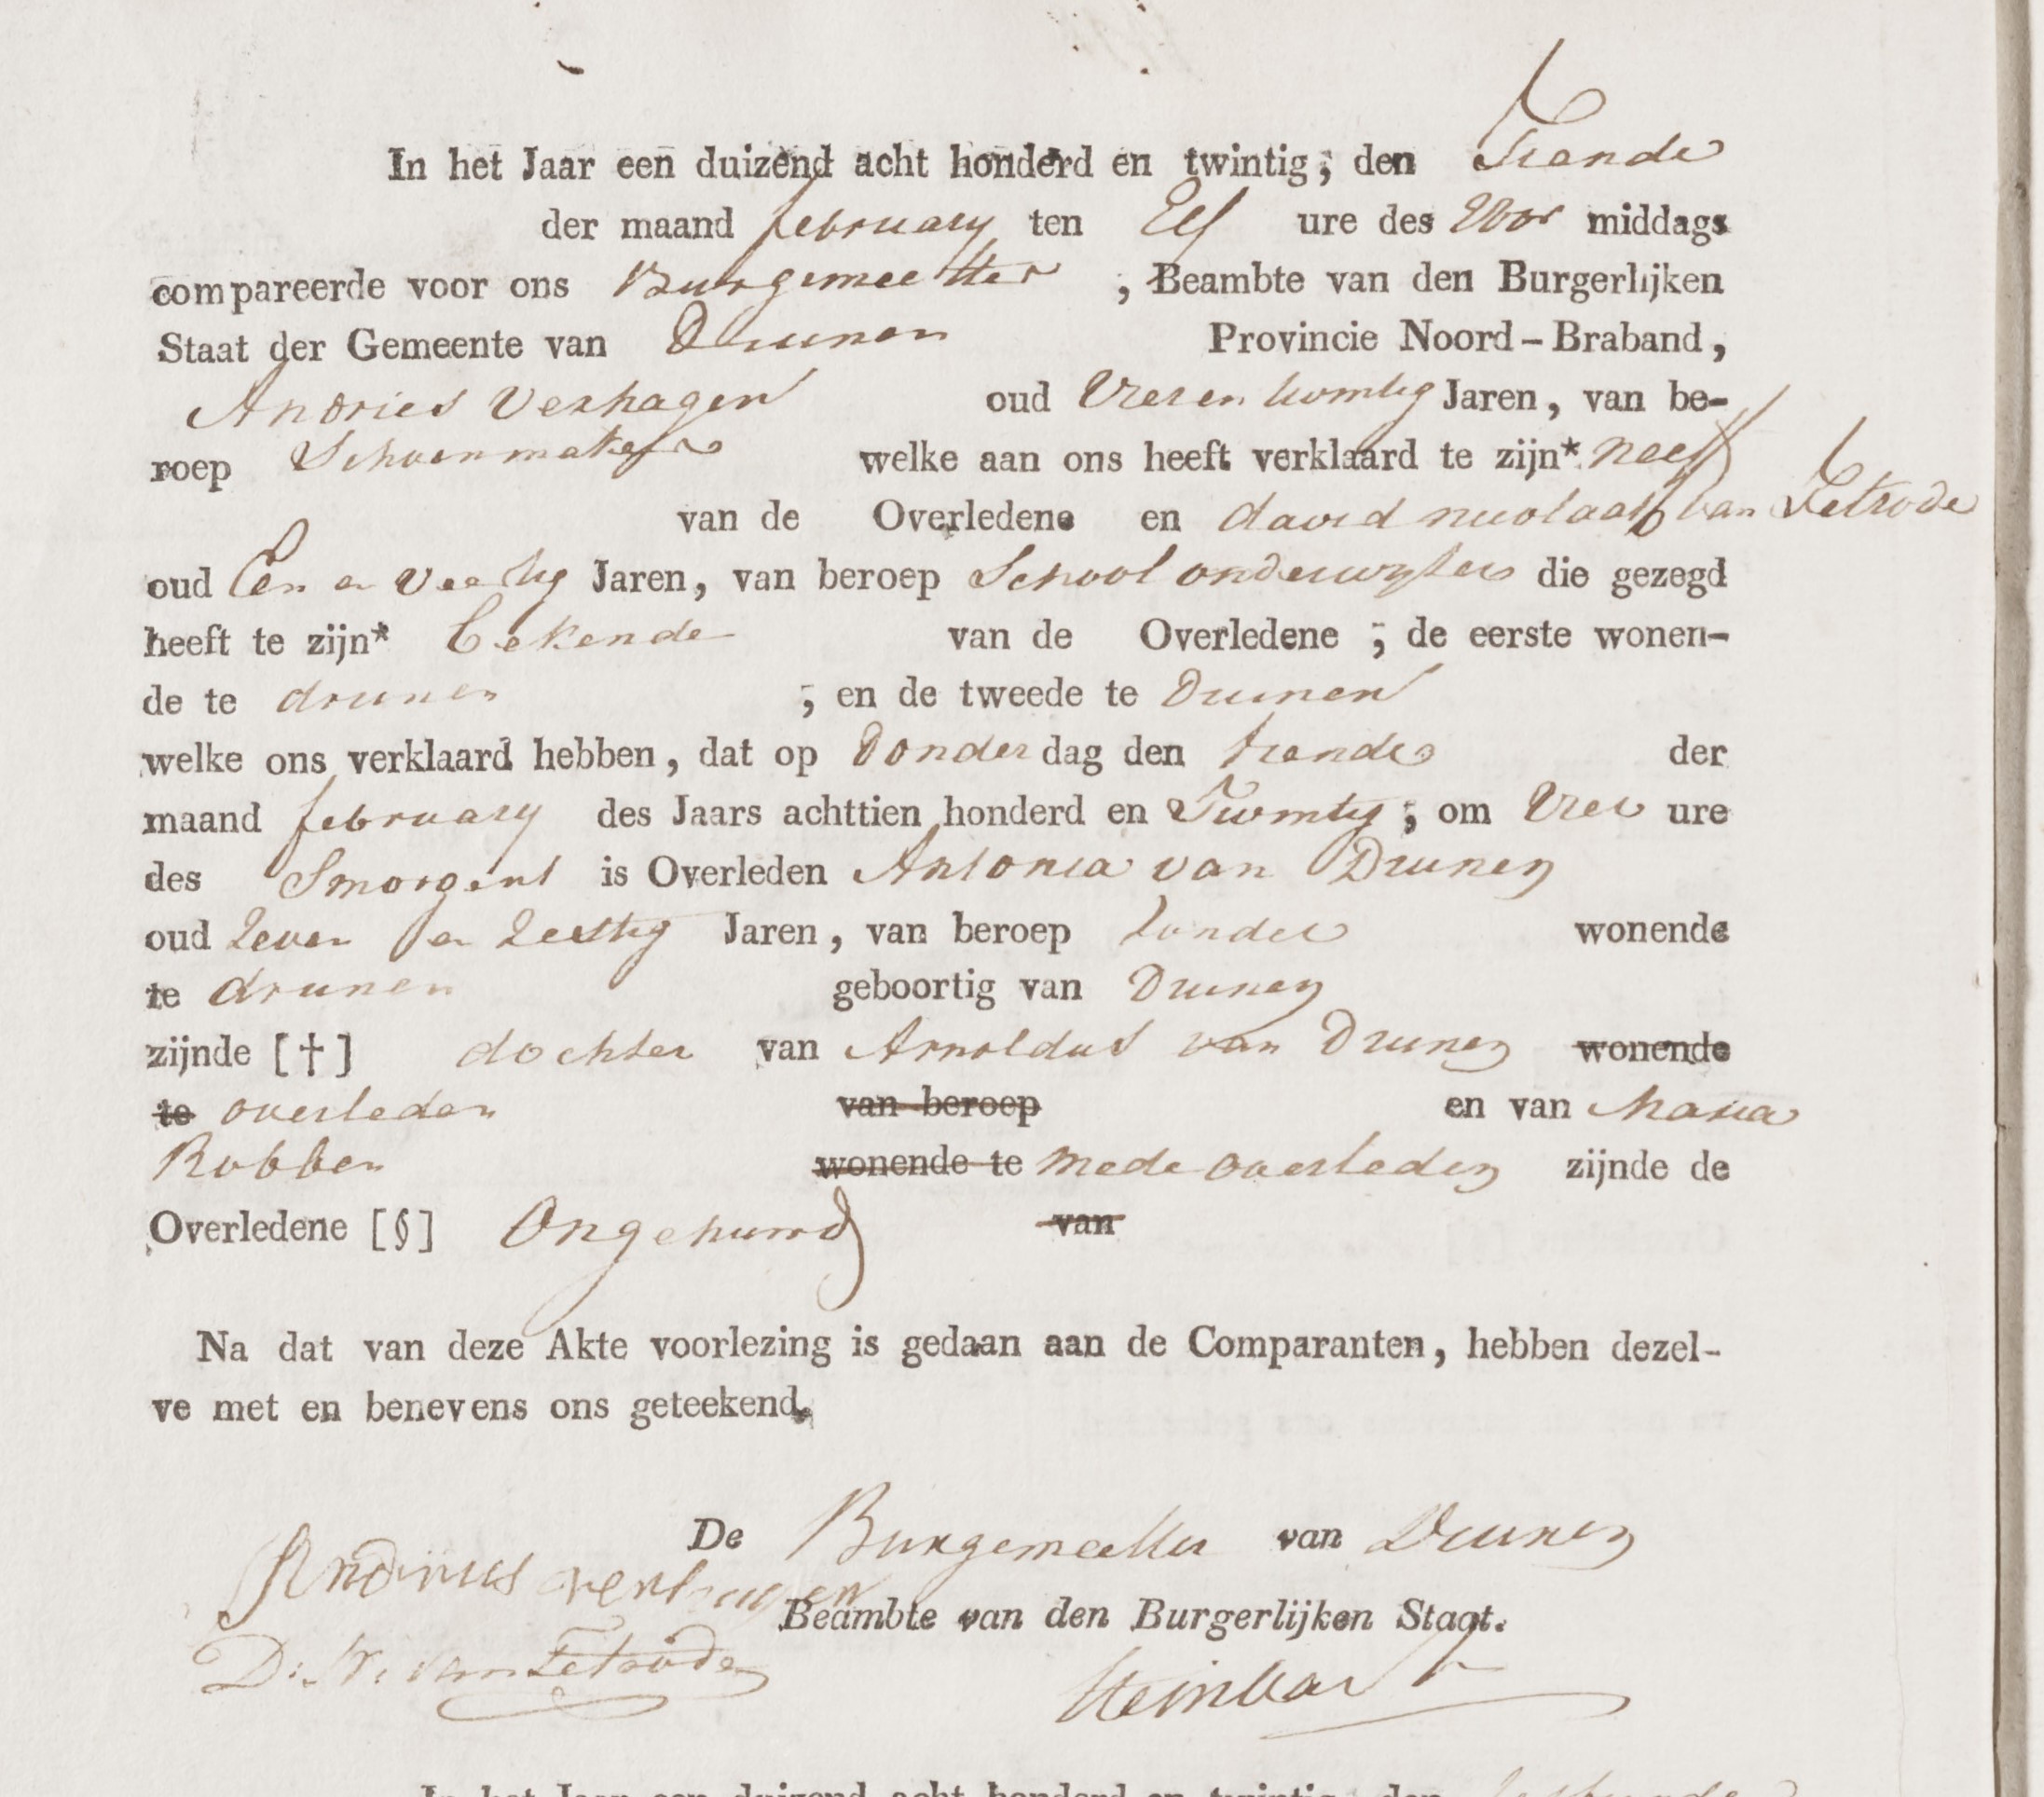 In het Jaar een duizend acht honderd en twintig, den Tiende
der maand february ten Elf ure des Voor middags
compareerde voor ons Burgemeester , Beambte van den Burgerlijken
Staat der Gemeente van Drunen Provincie Noord-Braband,
Andries Verhagen oud Vier en twintig Jaren, van be-
roep Schoenmaker welke aan ons heeft verklaard te zijn* neeff
van de Overledene en david nicolaas van Tetrode
oud Een en Veertig Jaren, van beroep School onderwyser die gezegd
heeft te zijn* bekende van de Overledene ; de eerste wonen-
de te drunen ; en de tweede te Drunen
welke ons verklaard hebben, dat op Donder dag den tiende der
maand february des Jaars achttien honderd en Twintig ; om Vier ure
des Smorgens is Overleden Antonia van Drunen
oud Zeven en Zestig Jaren, van beroep zonder wonende
te drunen geboortig van Drunen
zijnde [†] dochter van Arnoldus van Drunen wonende
te overleden van beroep en van Maria
Robben wonende te mede overleden zijnde de
Overledene [§] Ongehuwd van
Na dat van deze Akte voorlezing is gedaan aan de Comparanten, hebben dezel-
ve met en benevens ons geteekend.
De Burgemeester van Drunen
Andriees verhagen
Beambte van den Burgerlijken Staat.
D: N: van Tetrode
Steinbart
In het Jaar een duizend acht honderd en twintig, den